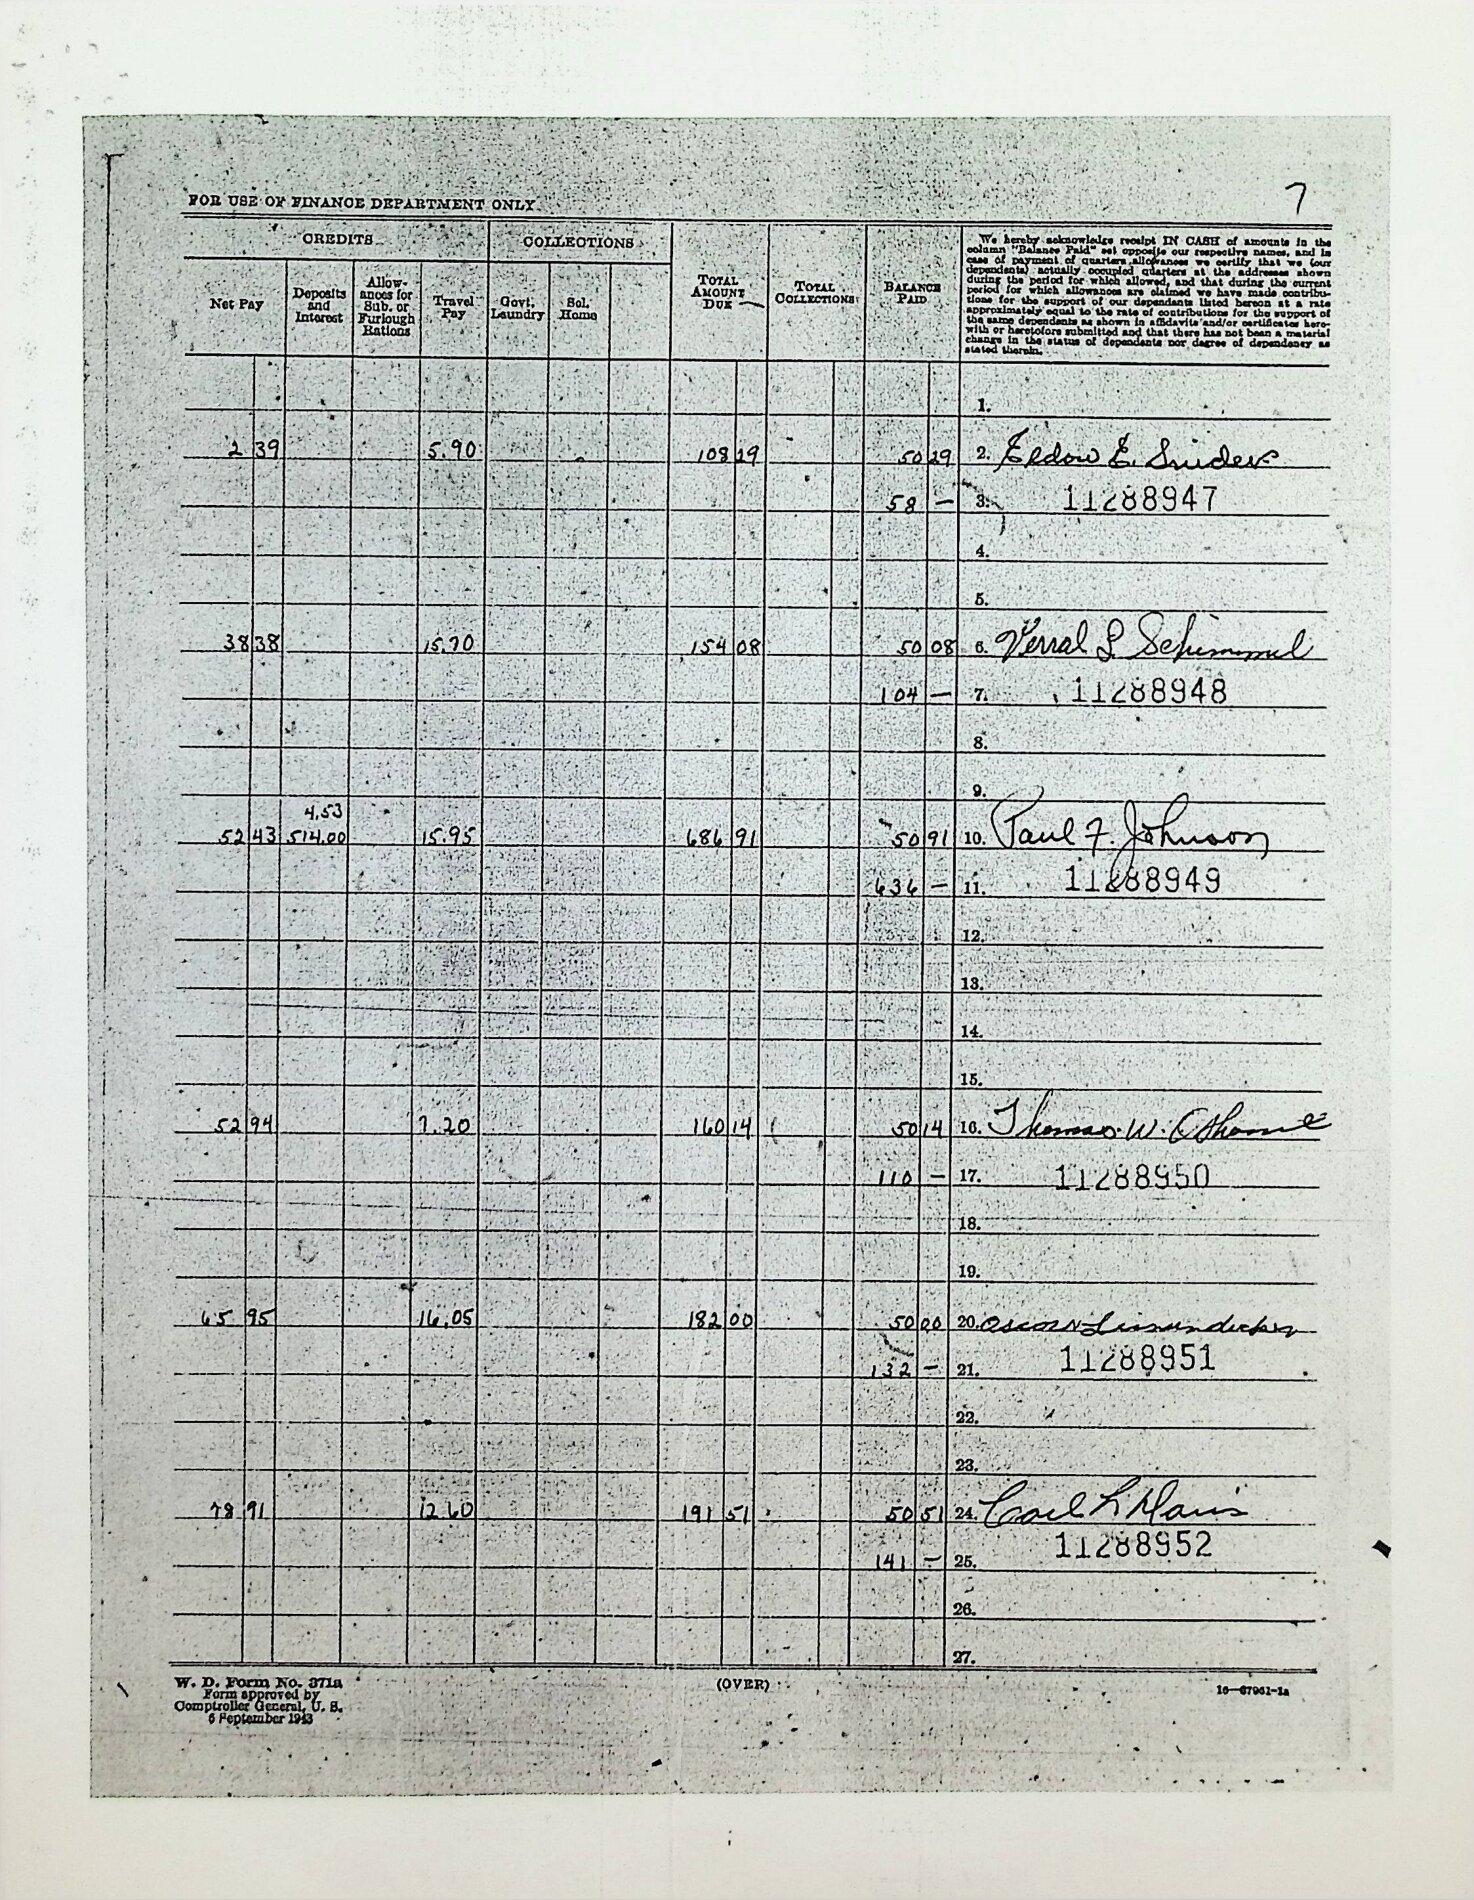 7
FOR USE OF FINANCE DEPARTMENT ONLY
CREDITS
COLLECTIONS
Net Pay
Deposits and Interest
Allowances for Sub. or Furlough Rations
Travel Pay
Govt. Laundry
Sol. Home
TOTAL AMOUNT DUE
TOTAL COLLECTIONS
BALANCE PAID
We hereby acknowledge receipt IN CASH of amounts in the
column "Balance Paid" set opposite our respective names, and in
case of payment of quarters allowances we certify that we (our
dependents) actually occupied quarters at the addresses shown
during the period for which allowed, and that during the current
period for which allowances are claimed we have made contribu-
tions for the support of our dependents listed hereon at a rate
approximately equal to the rate of contributions for the support of
the same dependents as shown in affidavits and/or certificates here-
with or heretofore submitted and that there has not been a material
change in the status of dependents nor degree of dependency as
stated therein.
1.
2 39 5.90 108 29 50 29 2. E. Snider
58 — 3. 11288947
4.
5.
38 38 15.70 154 08 50 08 6. Verral L Schimmel
104 — 7. 11288948
8.
9.
4.53
52 43 514.00 15.95 686 91 50 91 10. Paul F. Johnson
636 — 11. 11288949
12.
13.
14.
15.
52 94 7.20 160 14 50 14 16. Thomas W.
110 — 17. 11288950
18.
19.
65 95 16.05 182 00 50 00 20.
132 — 21. 11288951
22.
23.
78 91 12.60 191 51 50 51 24. Carl L
141 — 25. 11288952
26.
27.
W. D. Form No. 371a
Form approved by
Comptroller General, U. S.
6 September 1943
(OVER)
16—37961-1a